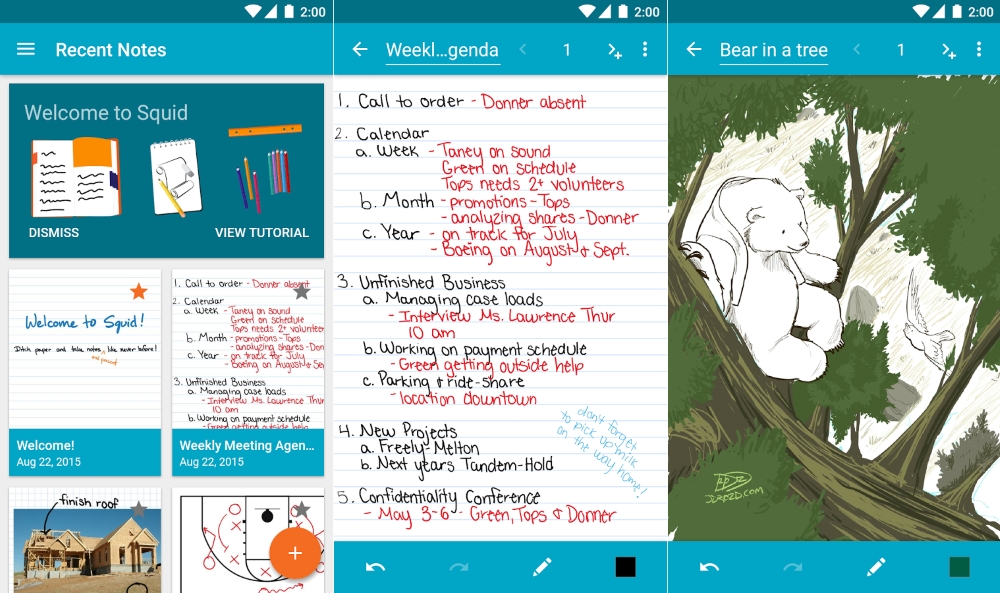 2:00
Recent Notes
Welcome to Squid
DISMISS
VIEW TUTORIAL
Welcome to Squid!
Ditch paper and take notes, like never before!
and passed
Welcome!
Aug 22, 2015
1. Call to order - Donner absent
2. Calendar
a. Week - Taney on sound
Green on schedule
Tops needs 2+ volunteer
b. Month - promotions-Tops
- analyzing shares-Don
c. Year - on track for July
- Boeing on August & Se
3. Unfinished Business
a. Managing case loads
- Interview Ms. Lawrence Thur
10 am
b. Working on payment schedule
- Green getting outside help
Weekly Meeting Agen...
Aug 22, 2015
finish roof
2:00
Weekl...genda
1
1. Call to order - Donner absent
2. Calendar
a. Week - Taney on sound
Green on schedule
Tops needs 2+ volunteers
b. Month - promotions-Tops
- analyzing shares-Donner
c. Year - on track for July
- Boeing on August & Sept.
3. Unfinished Business
a. Managing case loads
- Interview Ms. Lawrence Thur
10 am
b. Working on payment schedule
- Green getting outside help
c. Parking & ride-share
- location downtown
don't forget
to pick up milk
on the way home!
4. New Projects
a. Freely-Melton
b. Next years Tandem-Hold
5. Confidentiality Conference
- May 3-6 - Green, Tops & Donner
2:00
Bear in a tree
1